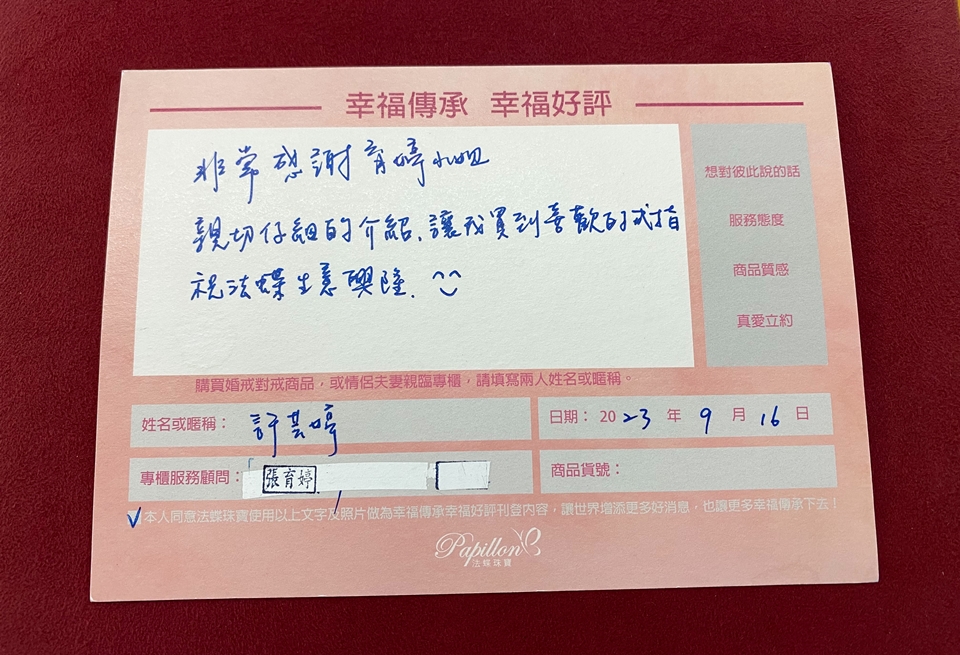 幸福傳承 幸福好評
非常感謝育婷小姐
親切仔細的介紹、讓我買到喜歡的戒指
祝法蝶生意興隆.
想對彼此說的話
服務態度
商品質感
真愛立約
購買婚戒對戒商品，或情侶夫妻親臨專櫃，請填寫兩人姓名或暱稱。
姓名或暱稱： 許芸婷
日期： 2023 年 9 月 16 日
專櫃服務顧問： 張育婷
商品貨號：
本人同意法蝶珠寶使用以上文字及照片做為幸福傳承幸福好評刊登內容，讓世界增添更多好消息，也讓更多幸福傳承下去！
Papillon
法蝶珠寶